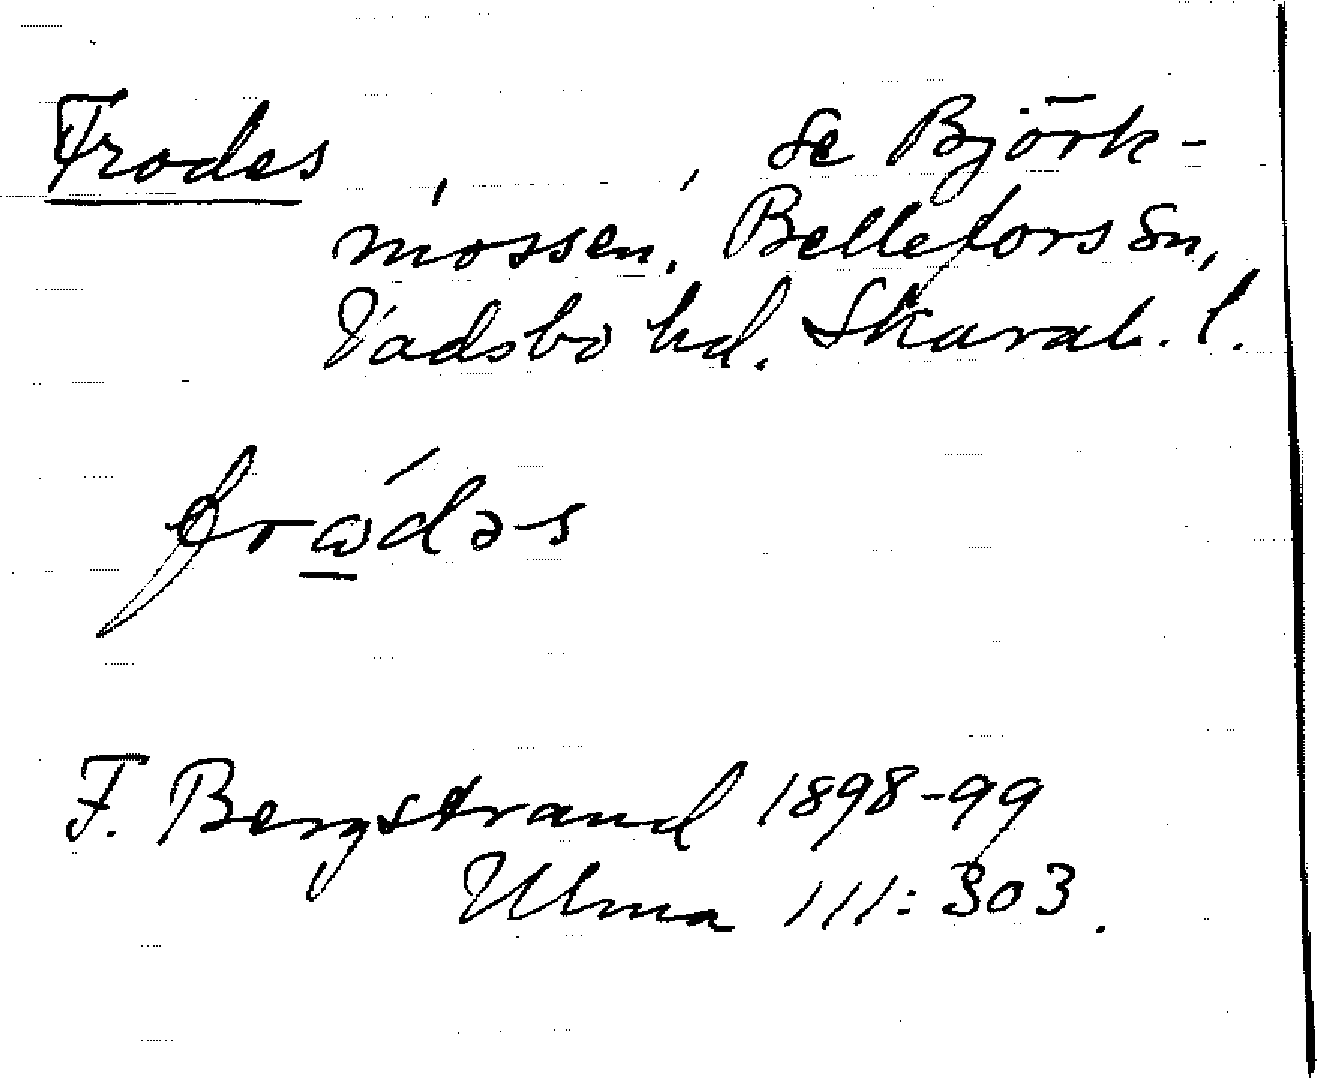 Frodes , , se Björk-
mossen, Bellefors sn,
Vadsbo hd. Skarab. l.
frώ̲dəs
F. Bergstrand 1898-99
Ulma 111:303.